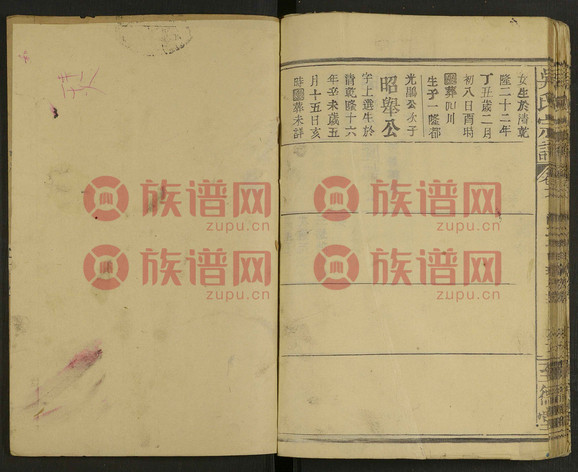 女生於清乾
隆二十二年
丁丑歲二月
初八日酉時
葬四川
生子一隆都
光鵬公次子
昭舉公
字上選生於
清乾隆十六
年辛未歲五
月十五日亥
時 葬未詳
吳氏宗譜
卷
族谱网
zupu.cn
族谱网
zupu.cn
族谱网
zupu.cn
族谱网
zupu.cn